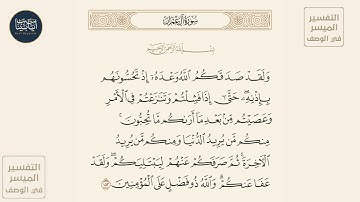 سُورَةُ آلِ عِمْرَانَ
بِسْمِ اللَّهِ الرَّحْمَٰنِ الرَّحِيمِ
وَلَقَدْ صَدَقَكُمُ اللَّهُ وَعْدَهُ إِذْ تَحُسُّونَهُم
بِإِذْنِهِ حَتَّىٰ إِذَا فَشِلْتُمْ وَتَنَازَعْتُمْ فِي الْأَمْرِ
وَعَصَيْتُم مِّن بَعْدِ مَا أَرَاكُم مَّا تُحِبُّونَ
مِنكُم مَّن يُرِيدُ الدُّنْيَا وَمِنكُم مَّن يُرِيدُ
الْآخِرَةَ ثُمَّ صَرَفَكُمْ عَنْهُمْ لِيَبْتَلِيَكُمْ وَلَقَدْ
عَفَا عَنكُمْ وَاللَّهُ ذُو فَضْلٍ عَلَى الْمُؤْمِنِينَ ١٥٢
التفسير
الميسر
في الوصف
التفسير
الميسر
في الوصف